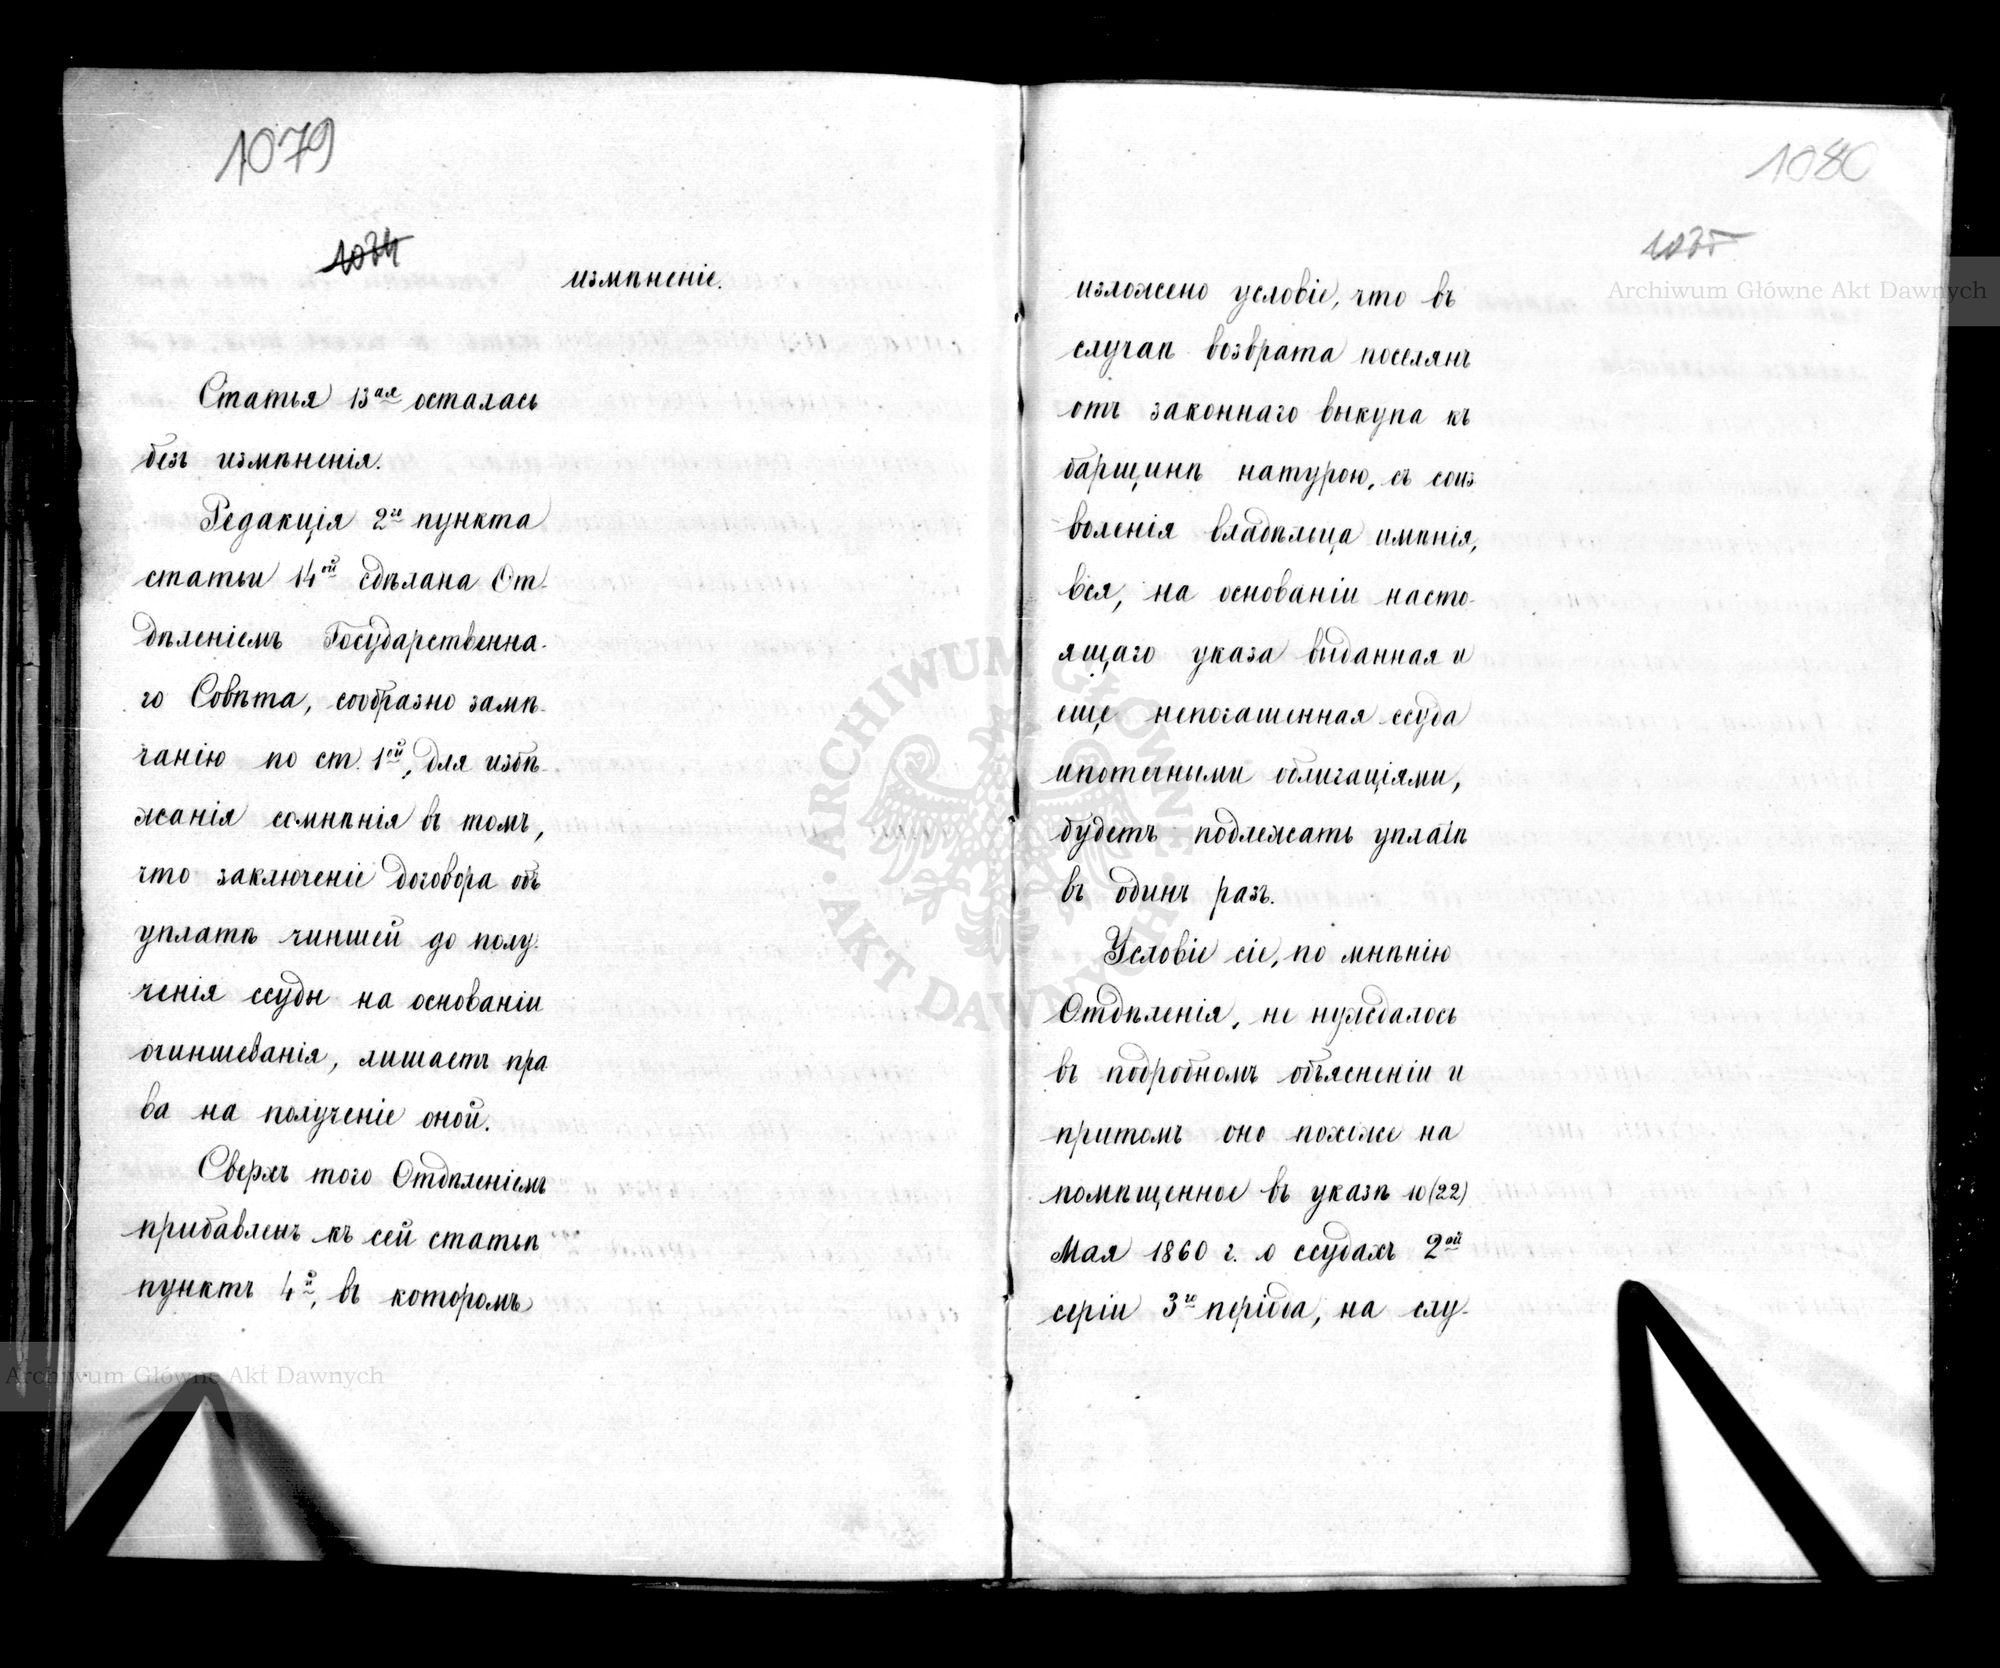 1079
1034
измѣненіе.
Статья 13ая осталась
безъ измѣненія.
Редакція 2го пункта
статьи 14ой сдѣлана От-
дѣленіемъ Государственна-
го Совѣта, сообразно замѣ-
чанію по ст. 1ой, для избѣ-
жанія сомнѣнія въ томъ,
что заключеніе договора объ
уплатѣ чиншей до полу-
ченія ссуды на основаніи
очиншеванія, лишаетъ пра
ва на полученіе оной.
Сверхъ того Отдѣленіемъ
прибавленъ къ сей статьѣ
пунктъ 4й, въ которомъ
1080
1035
изложено условіе, что въ
случаѣ возврата поселянъ
отъ законнаго выкупа къ
барщинѣ натурою, съ соиз
воленія владѣльца имѣнія,
вся, на основаніи насто-
ящаго указа выданная и
еще непогашенная ссуда
ипотечными облигаціями,
будетъ подлежать уплатѣ
въ одинъ разъ.
Условіе сіе, по мнѣнію
Отдѣленія, не нуждалось
въ подробномъ объясненіи и
притомъ оно похоже на
помѣщенное въ указѣ 10(22)
Мая 1860 г. о ссудахъ 2ой
серіи 3го періода, на слу-
Archiwum Główne Akt Dawnych
Archiwum Główne Akt Dawnych
ARCHIWUM GŁÓWNE · AKT DAWNYCH ·